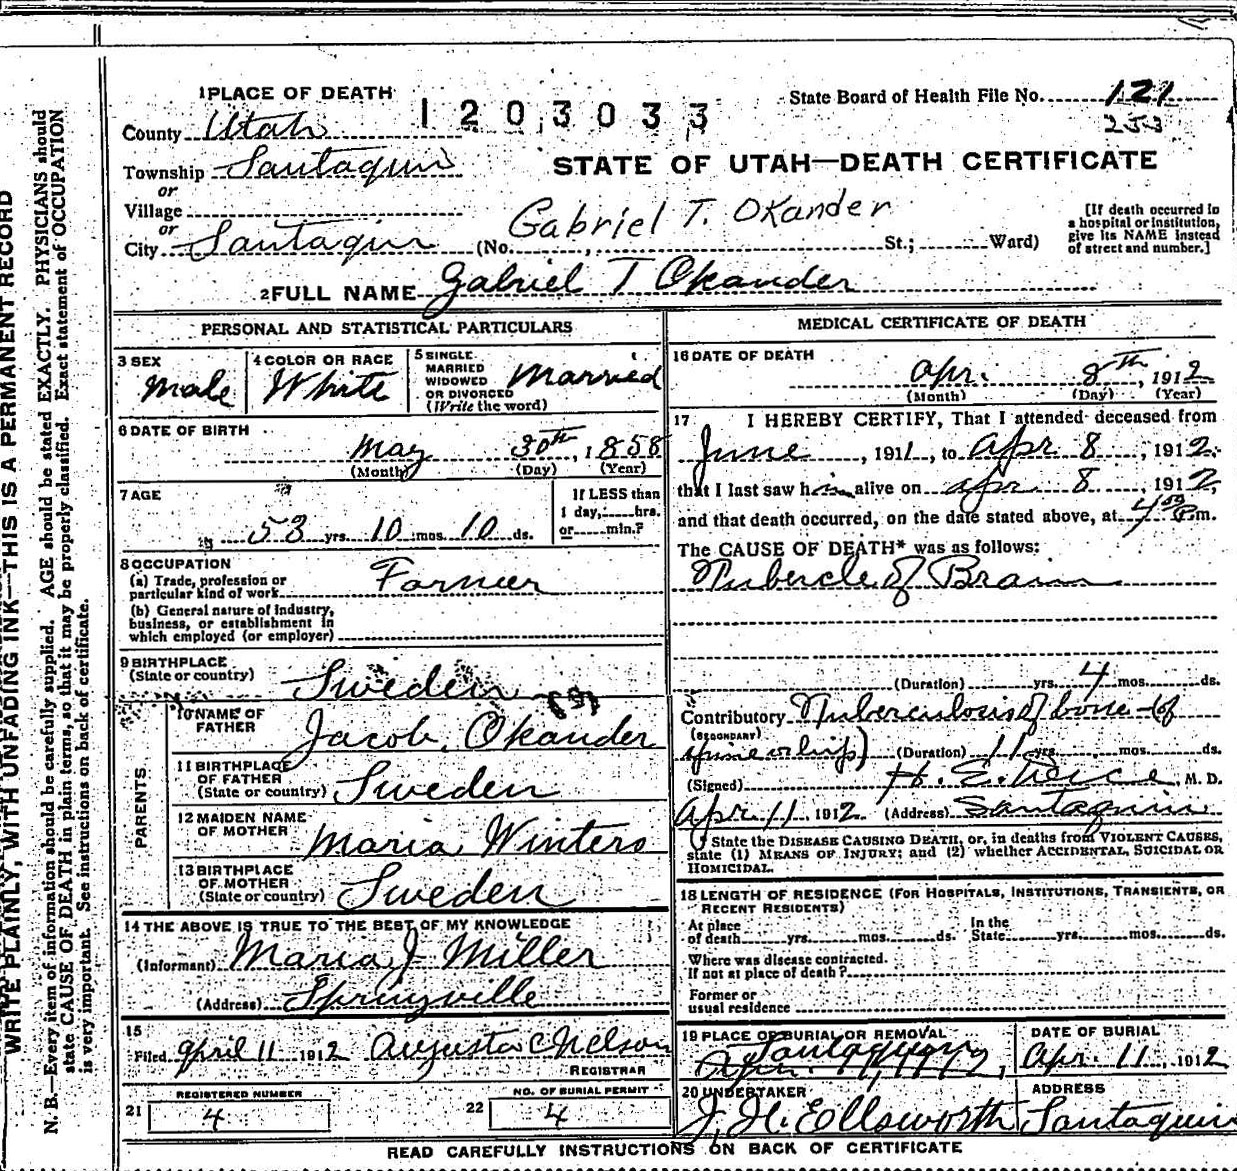 1 PLACE OF DEATH
1203033
State Board of Health File No. 121
253
County Utah
Township Santaquin
or
Village
or
City Santaquin (No. St.; Ward)
STATE OF UTAH—DEATH CERTIFICATE
Gabriel T. Okander
[If death occurred in a hospital or institution, give its NAME instead of street and number.]
2 FULL NAME Gabriel T Okander
PERSONAL AND STATISTICAL PARTICULARS
3 SEX
Male
4 COLOR OR RACE
White
5 SINGLE
MARRIED
WIDOWED
OR DIVORCED
(Write the word)
Married
6 DATE OF BIRTH
May 30th, 1858
(Month) (Day) (Year)
7 AGE
53 yrs. 10 mos. 10 ds.
If LESS than
1 day, hrs.
or min.?
8 OCCUPATION
(a) Trade, profession or
particular kind of work Farmer
(b) General nature of industry,
business, or establishment in
which employed (or employer)
9 BIRTHPLACE
(State or country) Sweden
PARENTS
10 NAME OF
FATHER Jacob Okander
11 BIRTHPLACE
OF FATHER
(State or country) Sweden
12 MAIDEN NAME
OF MOTHER Maria Winters
13 BIRTHPLACE
OF MOTHER
(State or country) Sweden
14 THE ABOVE IS TRUE TO THE BEST OF MY KNOWLEDGE
(Informant) Maria J Miller
(Address) Springville
15
Filed April 11 1912 Augusta C Nelson
REGISTRAR
REGISTERED NUMBER
21 4
NO. OF BURIAL PERMIT
22 4
MEDICAL CERTIFICATE OF DEATH
16 DATE OF DEATH
Apr. 8th, 1912
(Month) (Day) (Year)
17 I HEREBY CERTIFY, That I attended deceased from
June, 1911, to Apr 8, 1912,
that I last saw him alive on Apr 8, 1912,
and that death occurred, on the date stated above, at 4 P.m.
The CAUSE OF DEATH* was as follows:
Tubercle of Brain
(Duration) yrs. 4 mos. ds.
Contributory Tuberculosis of bone (of
(SECONDARY)
spine or hip) (Duration) 11 yrs. mos. ds.
(Signed) H. E. Peirce, M. D.
Apr 11 1912 (Address) Santaquin
State the DISEASE CAUSING DEATH, or, in deaths from VIOLENT CAUSES,
state (1) MEANS OF INJURY; and (2) whether ACCIDENTAL, SUICIDAL OR
HOMICIDAL.
18 LENGTH OF RESIDENCE (FOR HOSPITALS, INSTITUTIONS, TRANSIENTS, OR
RECENT RESIDENTS)
At place
of death yrs. mos. ds.
In the
State yrs. mos. ds.
Where was disease contracted.
If not at place of death?
Former or
usual residence
19 PLACE OF BURIAL OR REMOVAL
Santaquin
DATE OF BURIAL
Apr. 11, 1912
20 UNDERTAKER
J. H. Ellsworth
ADDRESS
Santaquin
READ CAREFULLY INSTRUCTIONS ON BACK OF CERTIFICATE
WRITE PLAINLY, WITH UNFADING INK—THIS IS A PERMANENT RECORD
N. B.—Every item of information should be carefully supplied. AGE should be stated EXACTLY. PHYSICIANS should
state CAUSE OF DEATH in plain terms, so that it may be properly classified. Exact statement of OCCUPATION
is very important. See instructions on back of certificate.